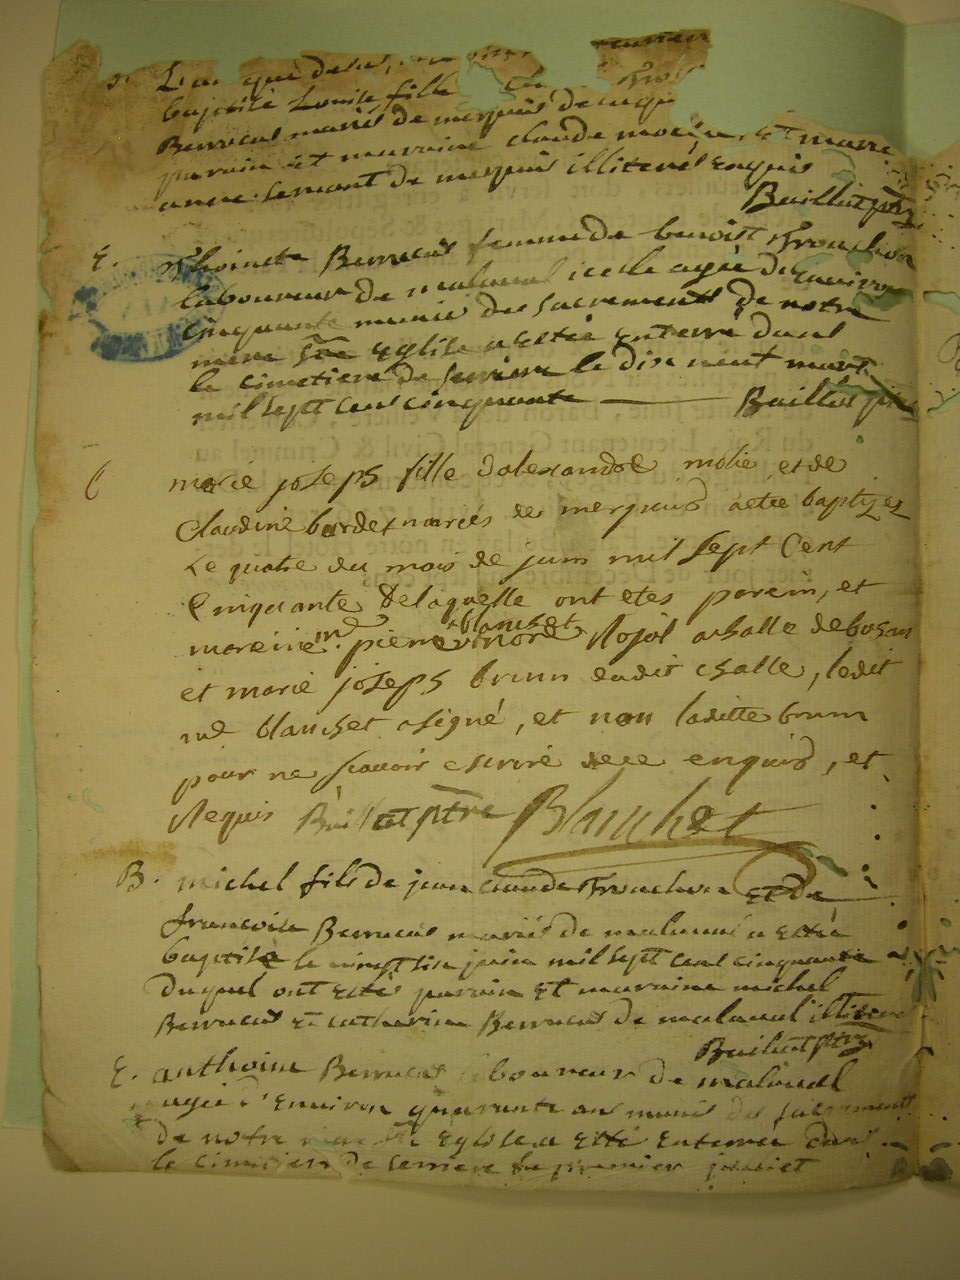 L'an que desus,
baptisé Louise fille
Berrucas mariés de merpuis
parain et maraine claude et marie
anne servant de merpuis illiterés enquis
Baillat ptre
E. Thoinete Berrucas femme de benoist Tronchon
laboureur de malaval icelle agée d'environ
cinquante munie des sacrements de notre
mere Ste Eglise a estée enterré dans
le cimetiere de serriere le dix neuf mars
mil sept cens cinquante Baillat ptre
marie joseph fille d'alexandre molie et de
Claudine bardet mariés de merpuis a etée baptizee
Le quatre du mois de juin mil sept Cent
Cinquante de laquelle ont etes parein, et
mareine pierre blanchet a challe de bohan
et marie joseph brun dudit challe, ledit
blanchet a signé, et non laditte brun
pour ne scavoir escrire de ce enquis, et
Requis Baillat ptre Blanchet
B. michel fils de jean claude Tronchon et de
francoise Berrucas mariés de malaval a esté
baptisé le vingt six juin mil sept cens cinquante
Duquel ont estés parain et maraine michel
Berrucas et catherine Berrucas de malaval illiteres
Baillat ptre
E. anthoine Berrucas laboureur de malaval
agée d'environ quarante ans munis des sacrements
de notre Eglise a esté enterré dans
le cimetiere de serriere le premier juillet